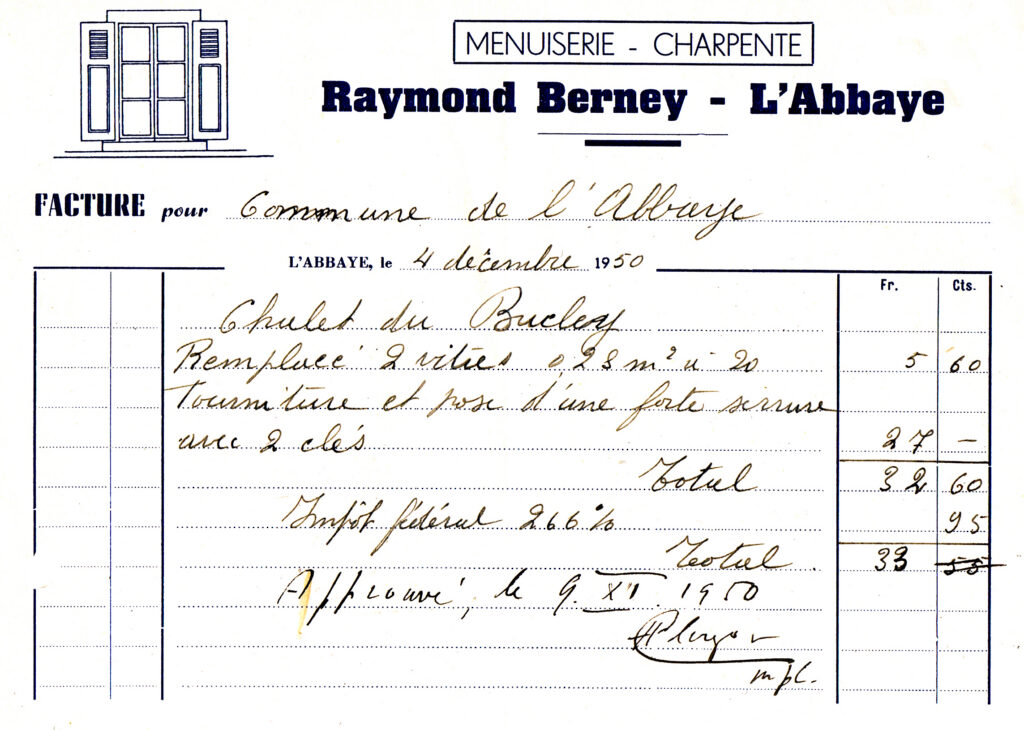 MENUISERIE - CHARPENTE
Raymond Berney - L'Abbaye
FACTURE pour Commune de l'Abbaye
L'ABBAYE, le 4 décembre 1950
Fr. Cts.
Chalet du Bucley
Remplacé 2 vitres 0,28 m² à 20 5 60
Fourniture et pose d'une forte serrure
avec 2 clés 27 —
Total 32 60
Impôt fédéral 2 6 6 % 95
Total . 33 55
Approuvé, le 9. XII. 1950
mpl.